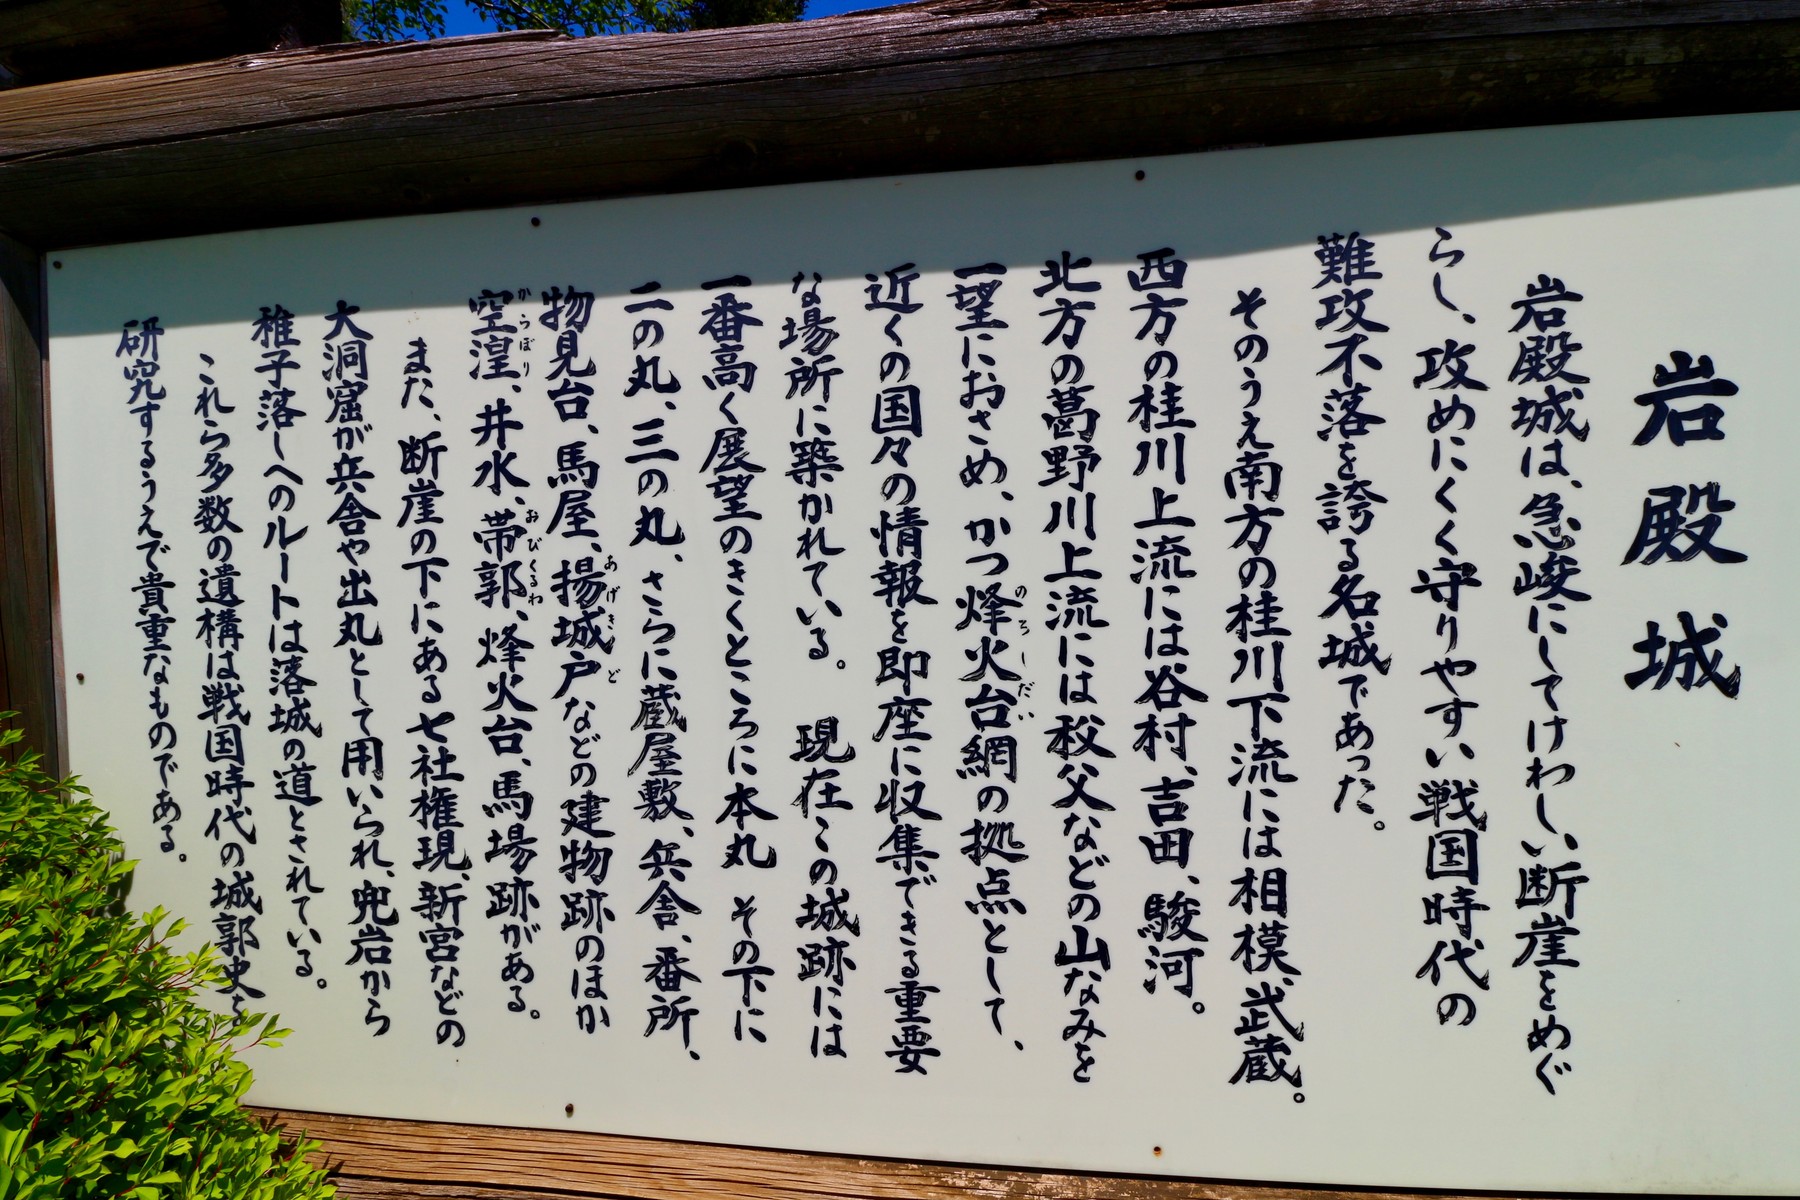 岩殿城
岩殿城は、急峻にしてけわしい断崖をめぐ
らし、攻めにくく守りやすい戦国時代の
難攻不落を誇る名城であった。
そのうえ南方の桂川下流には相模、武蔵。
西方の桂川上流には谷村、吉田、駿河。
北方の葛野川上流には秩父などの山なみを
一望におさめ、かつ烽火台網の拠点として、
のろしだい
近くの国々の情報を即座に収集できる重要
な場所に築かれている。 現在この城跡には
一番高く展望のきくところに本丸 その下に
二の丸、三の丸、さらに蔵屋敷、兵舎、番所、
物見台、馬屋、揚城戸などの建物跡のほか
あげきど
空湟、井水、帯郭、烽火台、馬場跡がある。
からぼり
おびくるわ
また、断崖の下にある七社権現、新宮などの
大洞窟が兵舎や出丸として用いられ、兜岩から
稚子落しへのルートは落城の道とされている。
これら多数の遺構は戦国時代の城郭史を
研究するうえで貴重なものである。